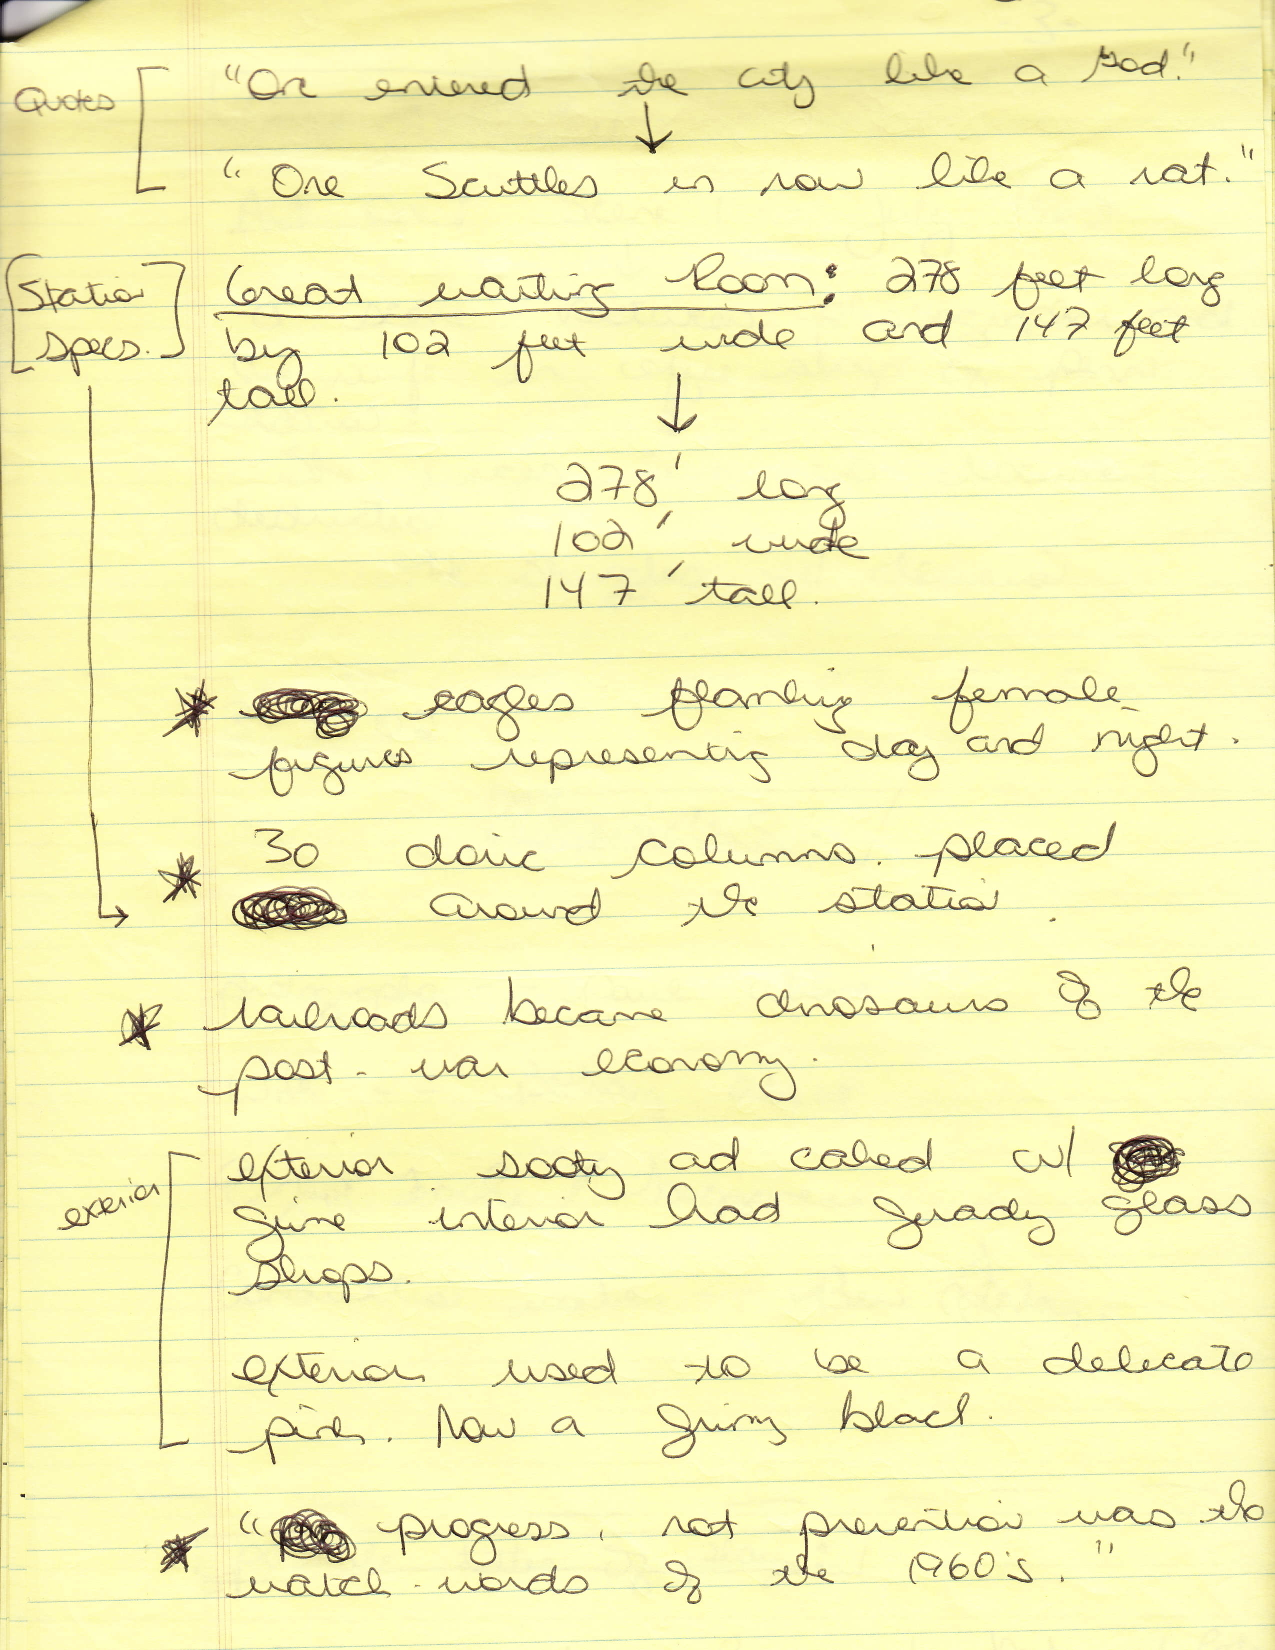 Quotes
"One entered the city like a god."
"One Scuttles in now like a rat."
Station
specs.
Great waiting Room: 278 feet long
by 102 feet wide and 147 feet
tall.
278' long
102' wide
147' tall.
eagles flanking female
figures representing day and night.
30 doric columns. placed
around the station.
railroads became dinosaurs of the
post-war economy.
exterior
exterior sooty ad caked w/
grime interior had glass
shops.
exterior used to be a delicate
pink. Now a grimy black.
"progress, not prevention was the
watch-words of the 1960's."